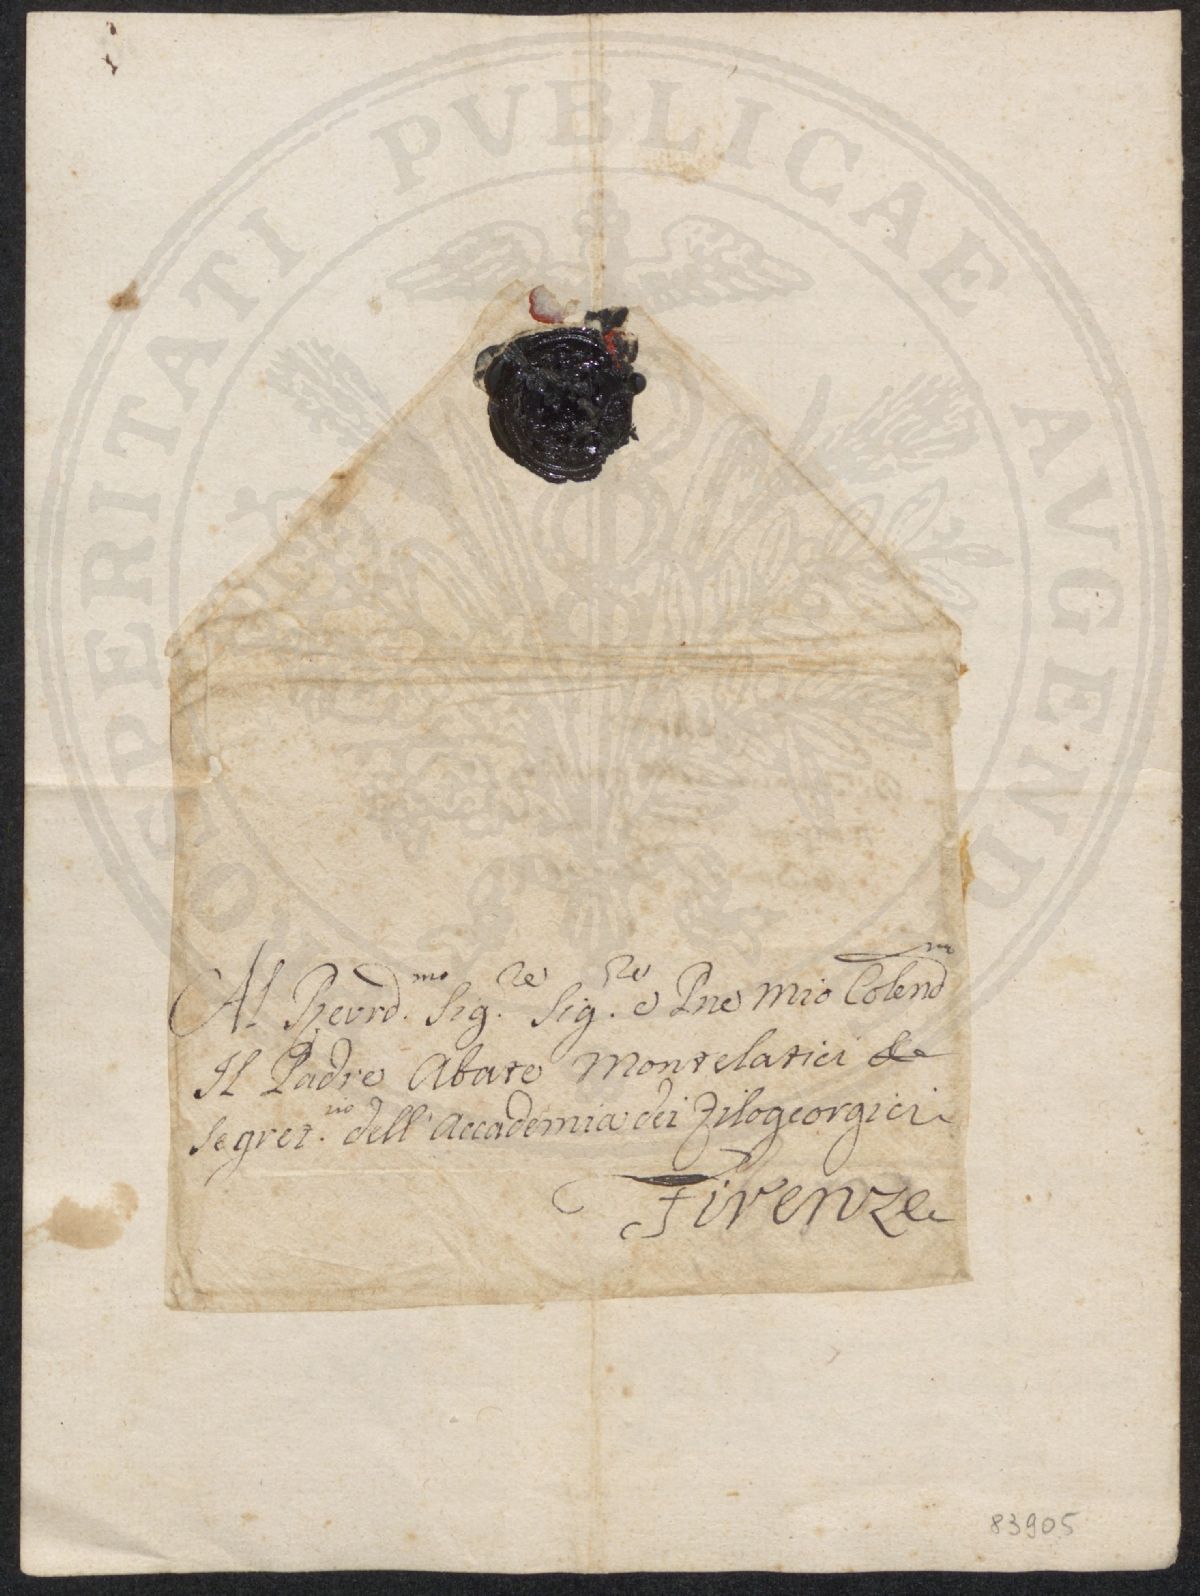 PROSPERITATI PVBLICAE AVGENDAE
Al Revrd.mo Sig.re Sig.re e Pne mio Colend.mo
Il Padre Abate Montelatici &
Segret.rio dell'Accademia dei Filogeorgici
Firenze
83905